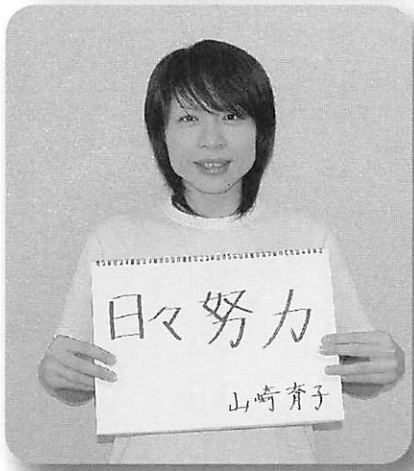 日々努力
山崎育子